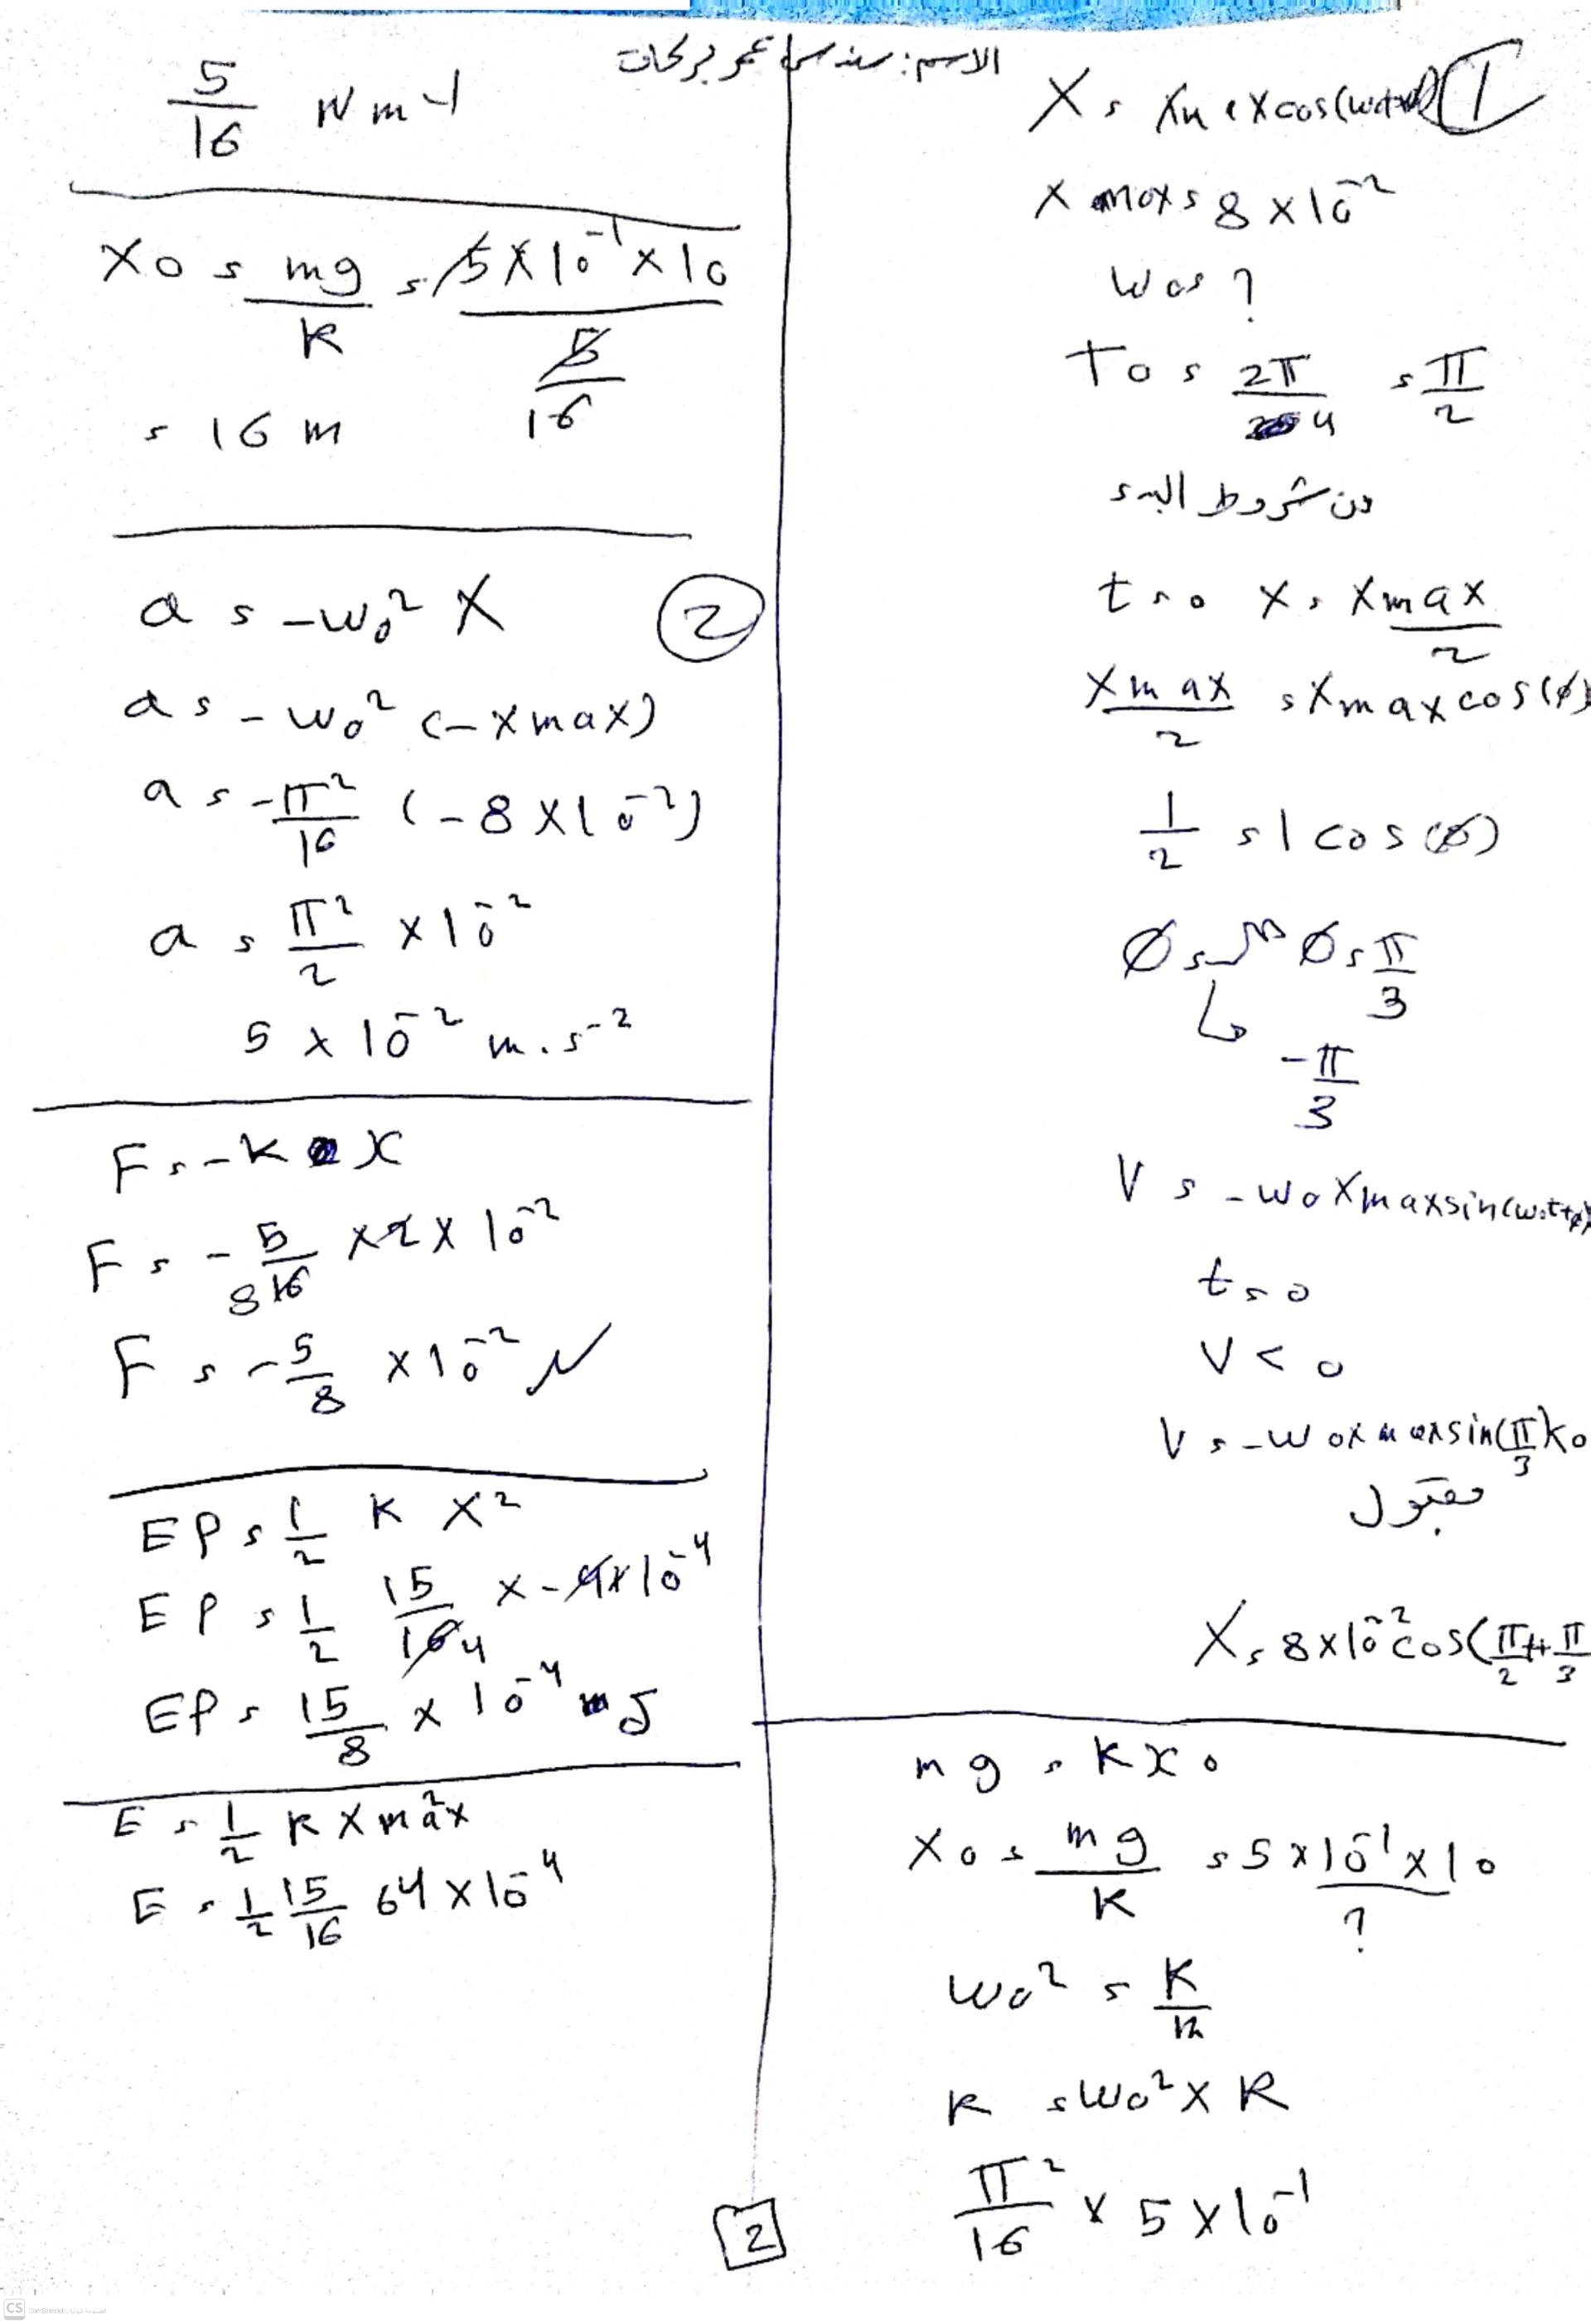 الاسم: سندس عمر بركات
X = Xmax cos(ωot+φ) ①
X max = 8 × 10⁻²
ωo = ?
To = 2π/4 = π/2
من شروط البدء
t = 0 X = Xmax/2
Xmax/2 = Xmax cos(φ)
1/2 = 1 cos(φ)
φ = φ = π/3
-π/3
V = -ωo Xmax sin(ωot+φ)
t = 0
V < 0
V = -ωo Xmax sin(π/3) < 0
مقبول
X = 8×10⁻² cos(π/2 t + π/3
mg = K Xo
Xo = mg/K = 5×10⁻¹×10/?
ωo² = K/m
K = ωo² × R
π²/16 × 5 × 10⁻¹
5/16 N m-1
Xo = mg/K = 5×10⁻¹×10/(5/16)
= 16 m
a = -ωo² X ②
a = -ωo² (-Xmax)
a = -π²/16 (-8 × 10⁻²)
a = π²/2 × 10⁻²
5 × 10⁻² m.s⁻²
F = -K X
F = -5/16 8 × 2 × 10⁻²
F = -5/8 × 10⁻² N
EP = 1/2 K X²
EP = 1/2 15/16 4 × -4×10⁻⁴
EP = 15/8 × 10⁻⁴ J
E = 1/2 K Xmax²
E = 1/2 15/16 64 × 10⁻⁴
2
CS CamScanner